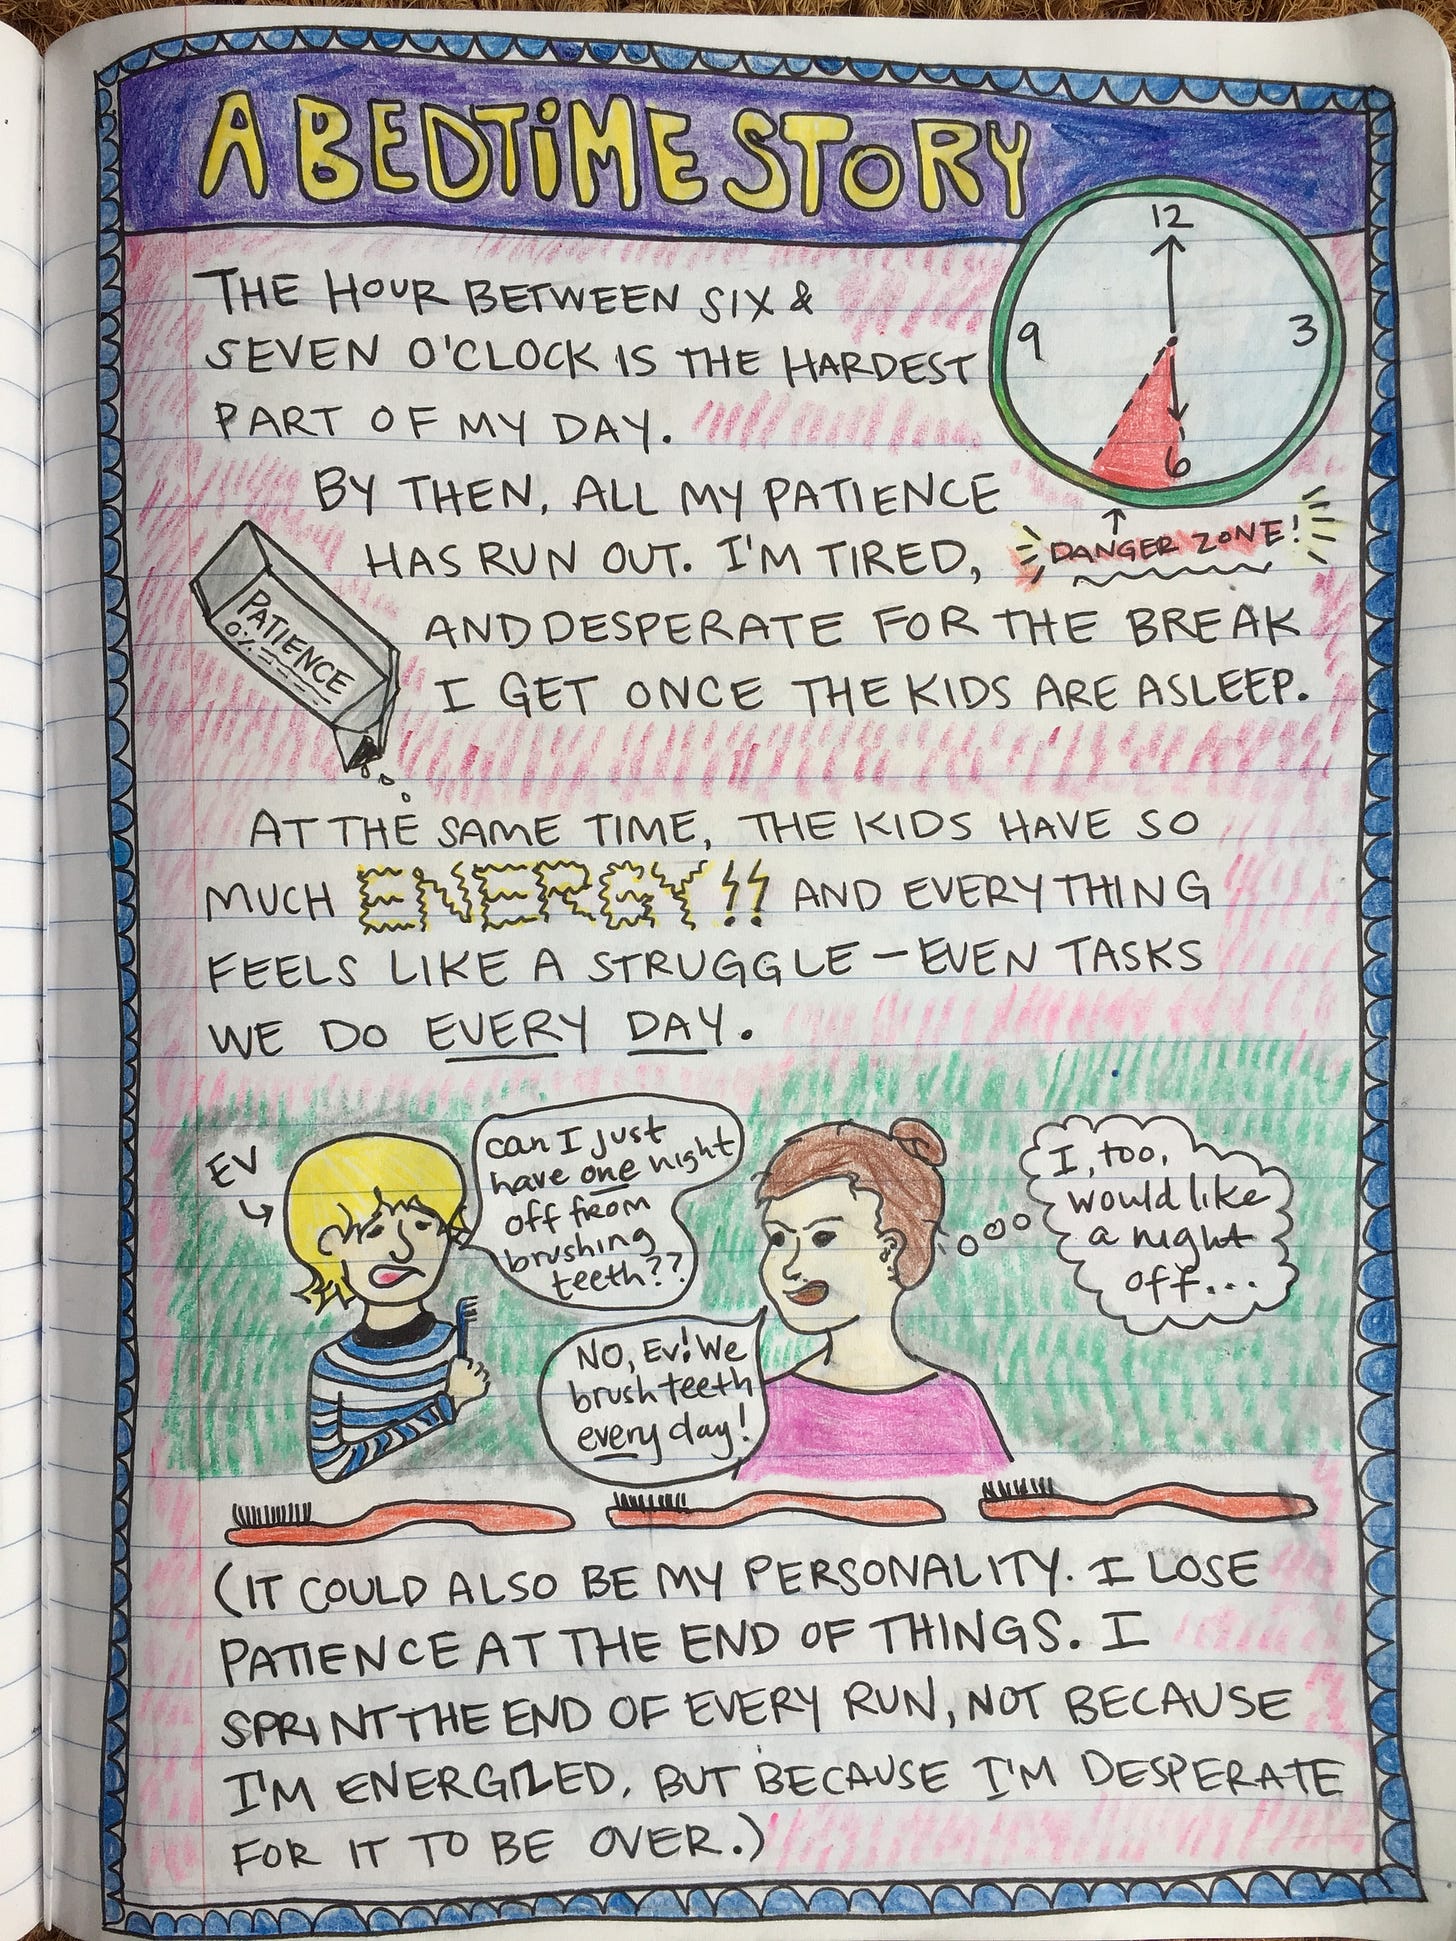 A BEDTIME STORY
12
3
6
9
DANGER ZONE!
THE HOUR BETWEEN SIX &
SEVEN O'CLOCK IS THE HARDEST
PART OF MY DAY.
BY THEN, ALL MY PATIENCE
HAS RUN OUT. I'M TIRED,
AND DESPERATE FOR THE BREAK
I GET ONCE THE KIDS ARE ASLEEP.
PATIENCE
0%
AT THE SAME TIME, THE KIDS HAVE SO
MUCH ENERGY!! AND EVERYTHING
FEELS LIKE A STRUGGLE – EVEN TASKS
WE DO EVERY DAY.
EV
can I just
have one night
off from
brushing
teeth??
No, Ev! We
brush teeth
every day!
I, too,
would like
a night
off...
(IT COULD ALSO BE MY PERSONALITY. I LOSE
PATIENCE AT THE END OF THINGS. I
SPRINT THE END OF EVERY RUN, NOT BECAUSE
I'M ENERGIZED, BUT BECAUSE I'M DESPERATE
FOR IT TO BE OVER.)